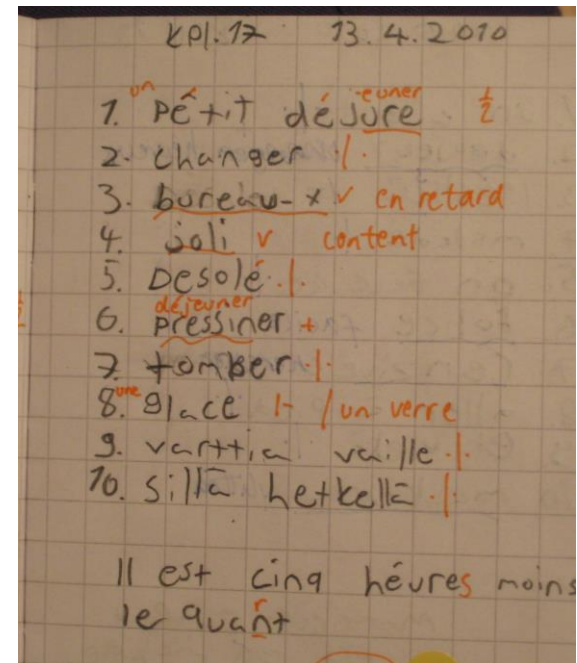 kpl. 17 13.4.2010
un euner
1. Pêtit déjure ½
2. changer ·|·
3. bureau-x v en retard
4. joli v content
5. Desolé ·|·
déjeuner
6. pressiner +
7. tomber ·|·
8. une glace |- / un verre
9. varttia vaille ·|·
10. sillä hetkellä ·|·
Il est cinq héures moins
r
le quant